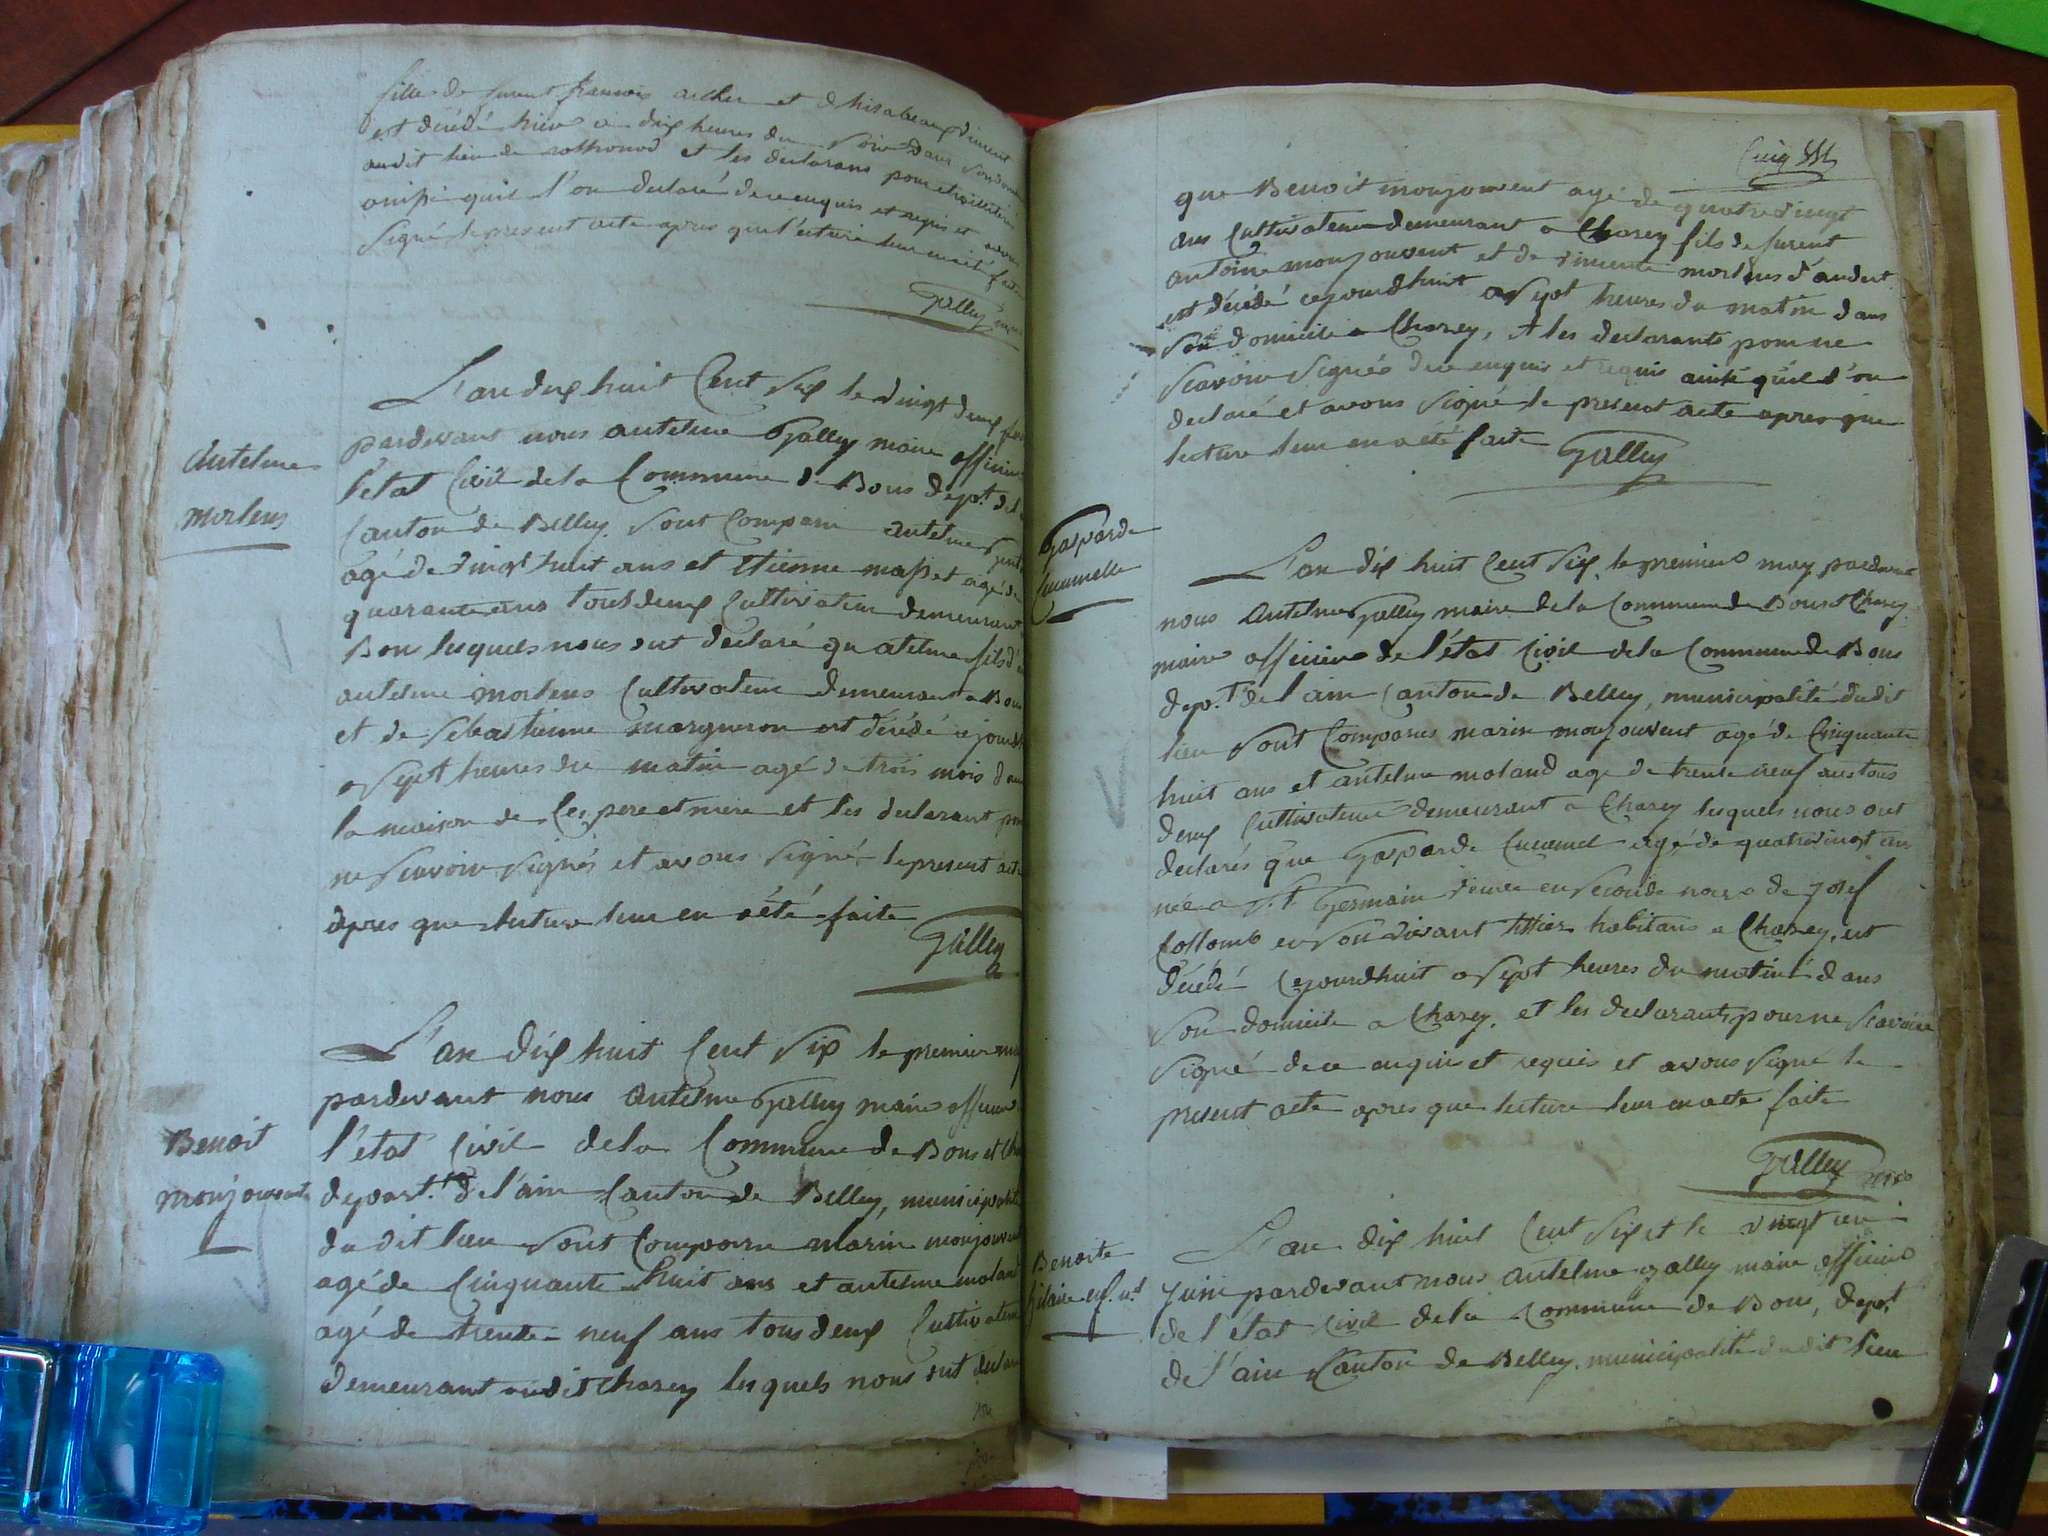 fille de furent francois archer et d
est décédé hier a dix heures du soir dans son
audit lieu de rothonod et les declarans pour
ainsi quil l'on declaré de ce enquis et requis et avons
signé le present acte apres que l'ecture leur en a été faite
Gallay
L'an dix huit Cent Six le vingt deux
pardevant nous antelme Gallay maire officier
l'état Civil de la Commune de Bons dept. de
Canton de Belley. sont Comparu antelme
agé de vingt huit ans et Etienne masset agé de
quarante ans tous deux Cultivateur demeurant
Bons lesquels nous ont declaré qu atelme fils d'
antelme mortens Cultivateur demeurant a Bons
et de sebastienne margueron est décédé
a sept heures du matin agé de trois mois dans
la maison de Ces pere et mere et les declarant pour
ne scavoir signés et avons signé le present acte
apres que lecture leur en a été faite
Gallay
Antelme
mortens
L'an dix huit Cent six le premier may
pardevant nous Antelme Gallay maire officier
l'état Civil de la Commune de Bons et
depart.t de l'ain Canton de Belley, municipalité
du dit lieu sont Comparu marin monjouvent
agé de Cinquante huit ans et antelme moland
agé de trente neuf ans tous deux Cultivateur
demeurant audit Charey lesquels nous ont declaré
Benoit
monjouvent
que Benoit monjouvent agé de quatre vingt
ans Cultivateur demeurant a Charey fils de furent
antoine monjouvent et de vincente mortens d'andert
est décédé cejourdhuit a sept heures du matin dans
son domicile a Charey, et les declarants pour ne
scavoir signés de ce enquis et requis ainsi quil l'on
declaré et avons signé le present acte apres que
lecture leur en a été faite Gallay
Gasparde
Cucumelle
L'an dix huit Cent six, le premier may pardevant
nous Antelme Gallay maire de la Commune de Bons et Charey
maire officier de l'état Civil de la Commune de Bons
dep.t de l'ain Canton de Belley, municipalité dudit
lieu sont Comparus marin monjouvent agé de Cinquante
huit ans et antelme moland agé de trente neuf ans tous
deux Cultivateur demeurant a Charey lesquels nous ont
declarés que Gasparde Cucumel agé de quatre vingt ans
née a St. Germain veuve en seconde noce de Josef
Collomb en son vivant habitans a Charey, est
décédé Cejourdhuit a sept heures du matin dans
son domicile a Charey, et les declarants pour ne scavoir
signé de ce enquis et requis et avons signé le
present acte apres que lecture leur en a été faite
Gallay
Benoite
L'an dix huit Cent six et le vingt un
Juin pardevant nous Antelme gallay maire officier
de l'état Civil de la Commune de Bons, dept.
de l'ain Canton de Belley, municipalité du dit lieu